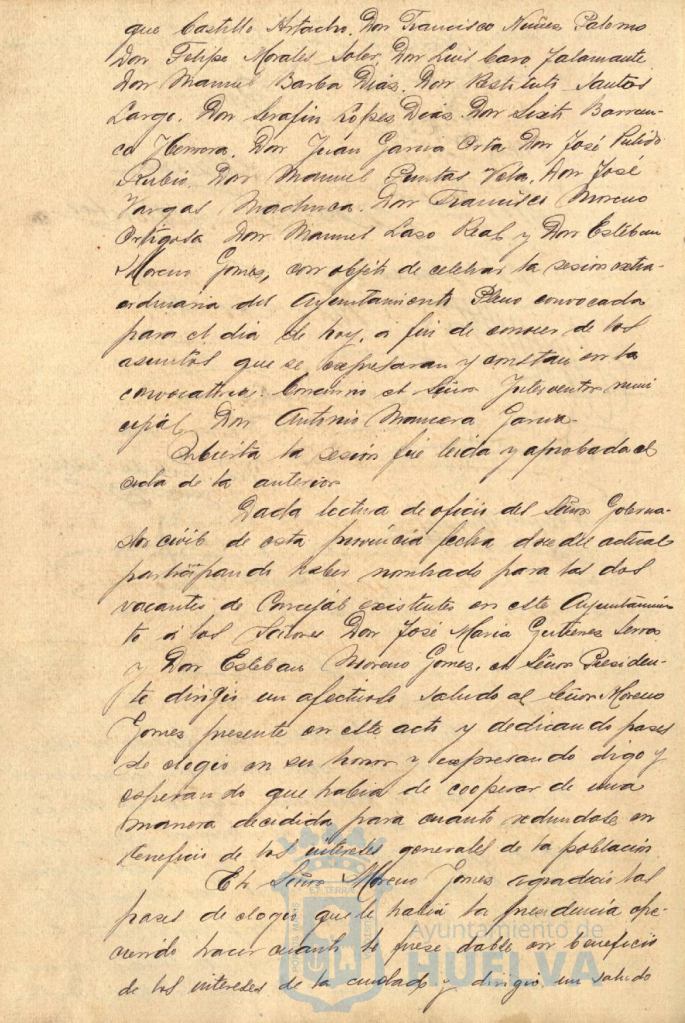 que Castillo Artacho, Don Francisco Nuñez Palomo
Don Felipe Morales Soler, Don Luis Caro Jalamante
Don Manuel Barba Dias. Don Restituto Santos
Largo. Don Serafin Lópes Dias. Don Sixto Barran-
co Herrera. Don Juan Garcia Orta Don José Pulido
Rubio. Don Manuel Puntas Vela. Don José
Vargas Machuca. Don Francisco Moreno
Ortigosa Don Manuel Laso Real y Don Esteban
Moreno Gomes, con objeto de celebrar la sesion extra-
ordinaria del Ayuntamiento Pleno convocada
para el dia de hoy, a fin de conocer de los
asuntos que se expresaran y constan en la
convocatoria. Concurrio el Señor Interventor muni
cipal Don Antonio Mancera Garcia.
Abierta la sesion fue leida y aprobada el
acta de la anterior
Dada lectura de oficio del Señor Goberna-
dor civil de esta provincia fecha doce del actual
participando haber nombrado para las dos
vacantes de Concejal existentes en este Ayuntamien-
to á los Señores Don José Maria Gutierres Serras
y Don Esteban Moreno Gomes, el Señor Presiden-
te dirigio un afectuoso saludo al Señor Moreno
Gomes presente en este acto y dedicando frases
de elogio en su honor y expresando digo y
esperando que habia de cooperar de una
manera decidida para cuanto redundase en
beneficio de los intereses generales de la poblacion
El Señor Moreno Gomes agradecio las
frases de elogio que le habia la presidencia ofre-
ciendo hacer cuanto le fuese dable en beneficio
de los intereses de la ciudad y dirigio un saludo
Ayuntamiento de
HUELVA